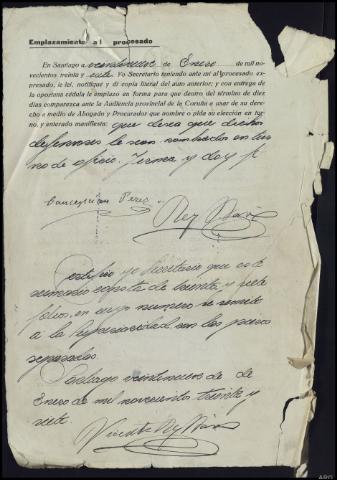 Emplazamiento al procesado
En Santiago a veintinueve de Enero de mil no-
vecientos treinta y siete Yo Secretario teniendo ante mi al procesado ex-
presado, le leí, notifiqué y di copia literal del auto anterior; y con entrega de
la oportuna cédula le emplazo en forma para que dentro del término de diez
días comparezca ante la Audiencia provincial de la Coruña a usar de su dere-
cho a medio de Abogado y Procurador que nombre o pida su elección en tur-
no, y enterado manifiesta: que desea que dichos
defensores le sean nombrados en tur
no de oficio. Firma y doy fé
Concepción Perez
Rey
Certifico yo Secretario que este
sumario consta de treinta y siete
folios, en cuyo número se remite
a la Superioridad con las piezas
separadas
Santiago veintinueve de
Enero de mil novecientos treinta y
siete
Vicente Rey